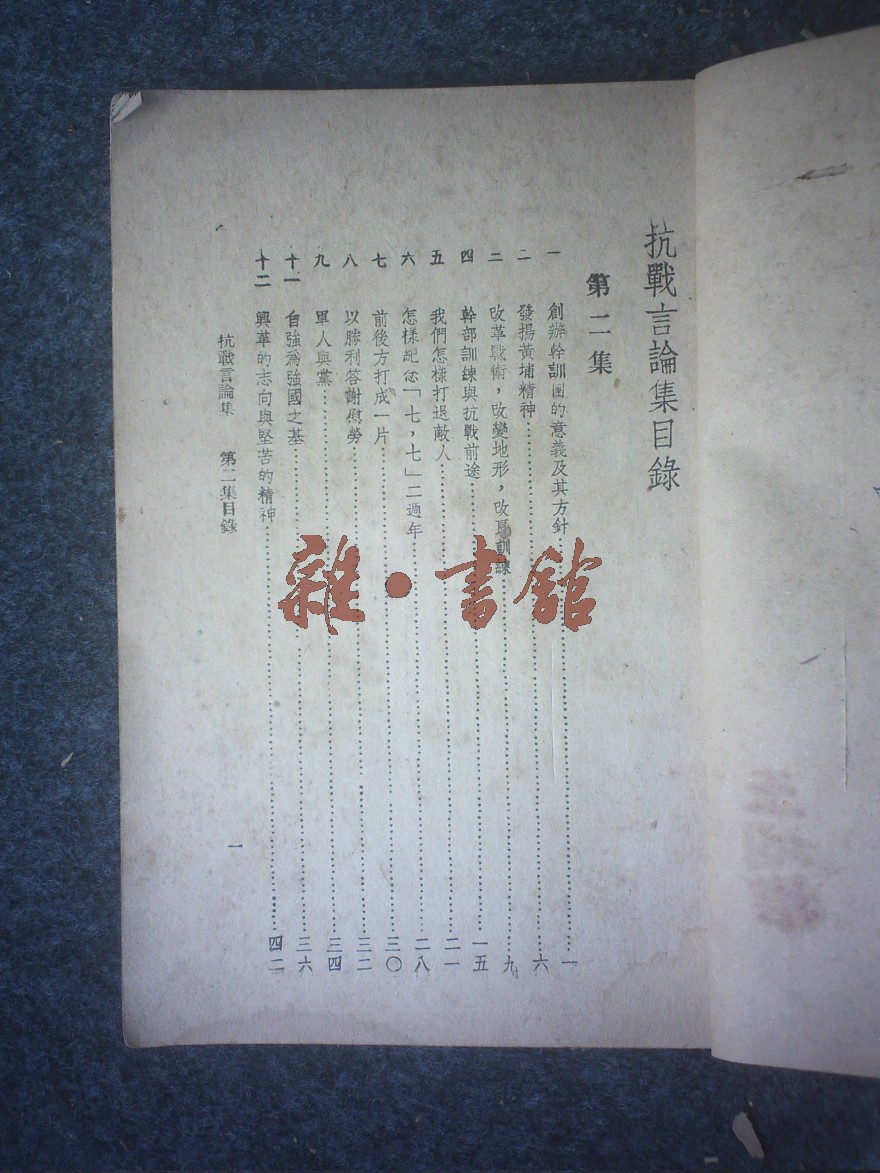 抗戰言論集目錄
第二集
一 創辦幹訓團的意義及其方針……一
二 發揚黃埔精神……六
三 改革戰術，改變地形，改良訓練……九
四 幹部訓練與抗戰前途……一五
五 我們怎樣打退敵人……二一
六 怎樣紀念「七，七」二週年……二八
七 前後方打成一片……三〇
八 以勝利答謝慰勞……三二
九 軍人與黨……三四
十一 自強為強國之基……三六
十二 興革的志向與堅苦的精神……四二
抗戰言論集 第二集目錄
一
雜·書館